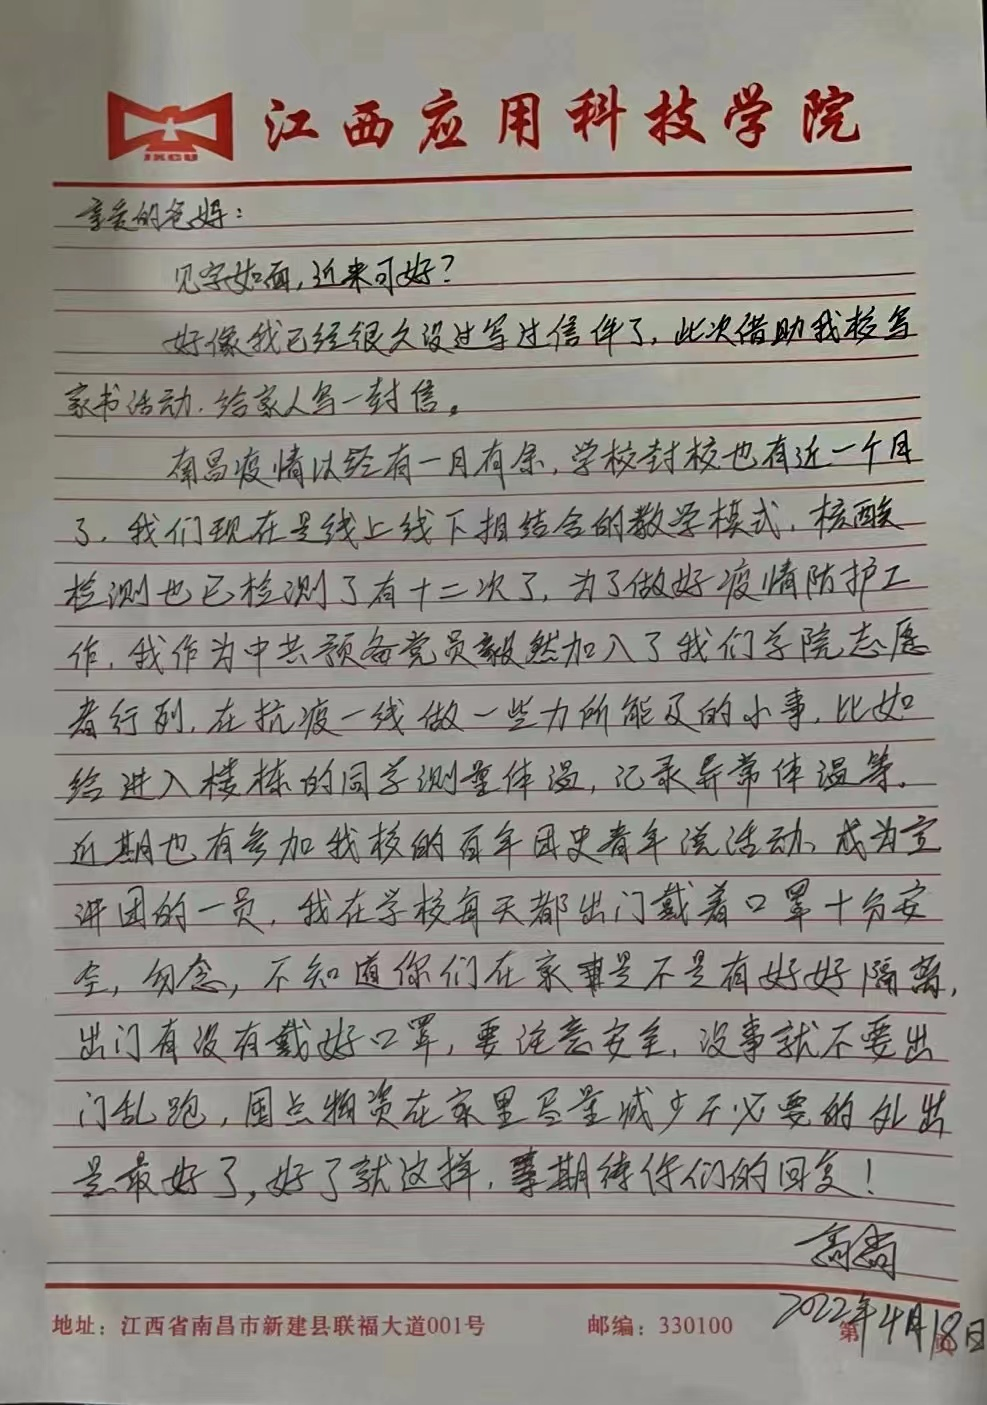 JXCU
江西应用科技学院
亲爱的爸妈：
见字如面，近来可好？
好像我已经很久没过写过信件了，此次借助我校写
家书活动，给家人写一封信。
南昌疫情以经有一月有余，学校封校也有近一个月
了，我们现在是线上线下相结合的教学模式，核酸
检测也已检测了有十二次了，为了做好疫情防护工
作，我作为中共预备党员毅然加入了我们学院志愿
者行列，在抗疫一线做一些力所能及的小事，比如
给进入楼栋的同学测量体温，记录异常体温等。
近期也有参加我校的百年团史青年说活动、成为宣
讲团的一员，我在学校每天都出门戴着口罩十分安
全，勿念，不知道你们在家是不是有好好隔离，
出门有没有戴好口罩，要注意安全，没事就不要出
门乱跑，囤点物资在家里尽量减少不必要的外出
是最好了，好了就这样，期待你们的回复！
2022年4月18日
地址：江西省南昌市新建县联福大道001号 邮编：330100 第 页